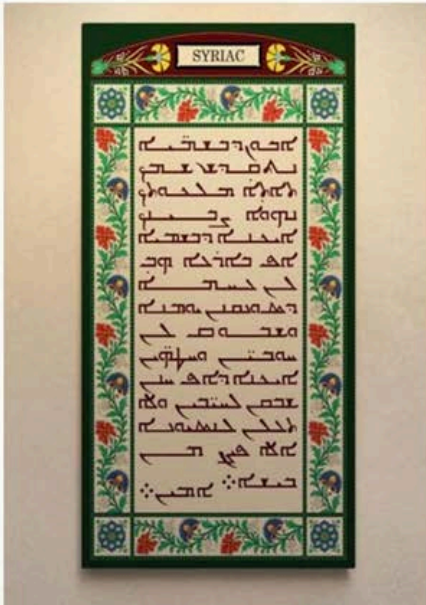 SYRIAC
ܐܒܘܢ ܕܒܫܡܝܐ
ܢܬܩܕܫ ܫܡܟ
ܬܐܬܐ ܡܠܟܘܬܟ
ܢܗܘܐ ܨܒܝܢܟ
ܐܝܟܢܐ ܕܒܫܡܝܐ
ܐܦ ܒܐܪܥܐ ܗܒ
ܠܢ ܠܚܡܐ
ܕܣܘܢܩܢܢ ܝܘܡܢܐ
ܘܫܒܘܩ ܠܢ
ܚܘܒ̈ܝܢ ܘܚܛܗ̈ܝܢ
ܐܝܟܢܐ ܕܐܦ ܚܢܢ
ܫܒܩܢ ܠܚܝ̈ܒܝܢ ܘܠܐ
ܬܥܠܢ ܠܢܣܝܘܢܐ
ܐܠܐ ܦܨܢ ܡܢ
ܒܝܫܐ܀ ܐܡܝܢ܀